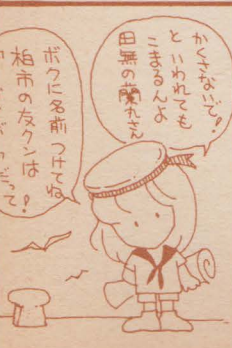 かくさないで!
といわれても
こまるんよ
田無の蘭丸さん
ボクに名前つけてね
柏市の友クンは
だって!